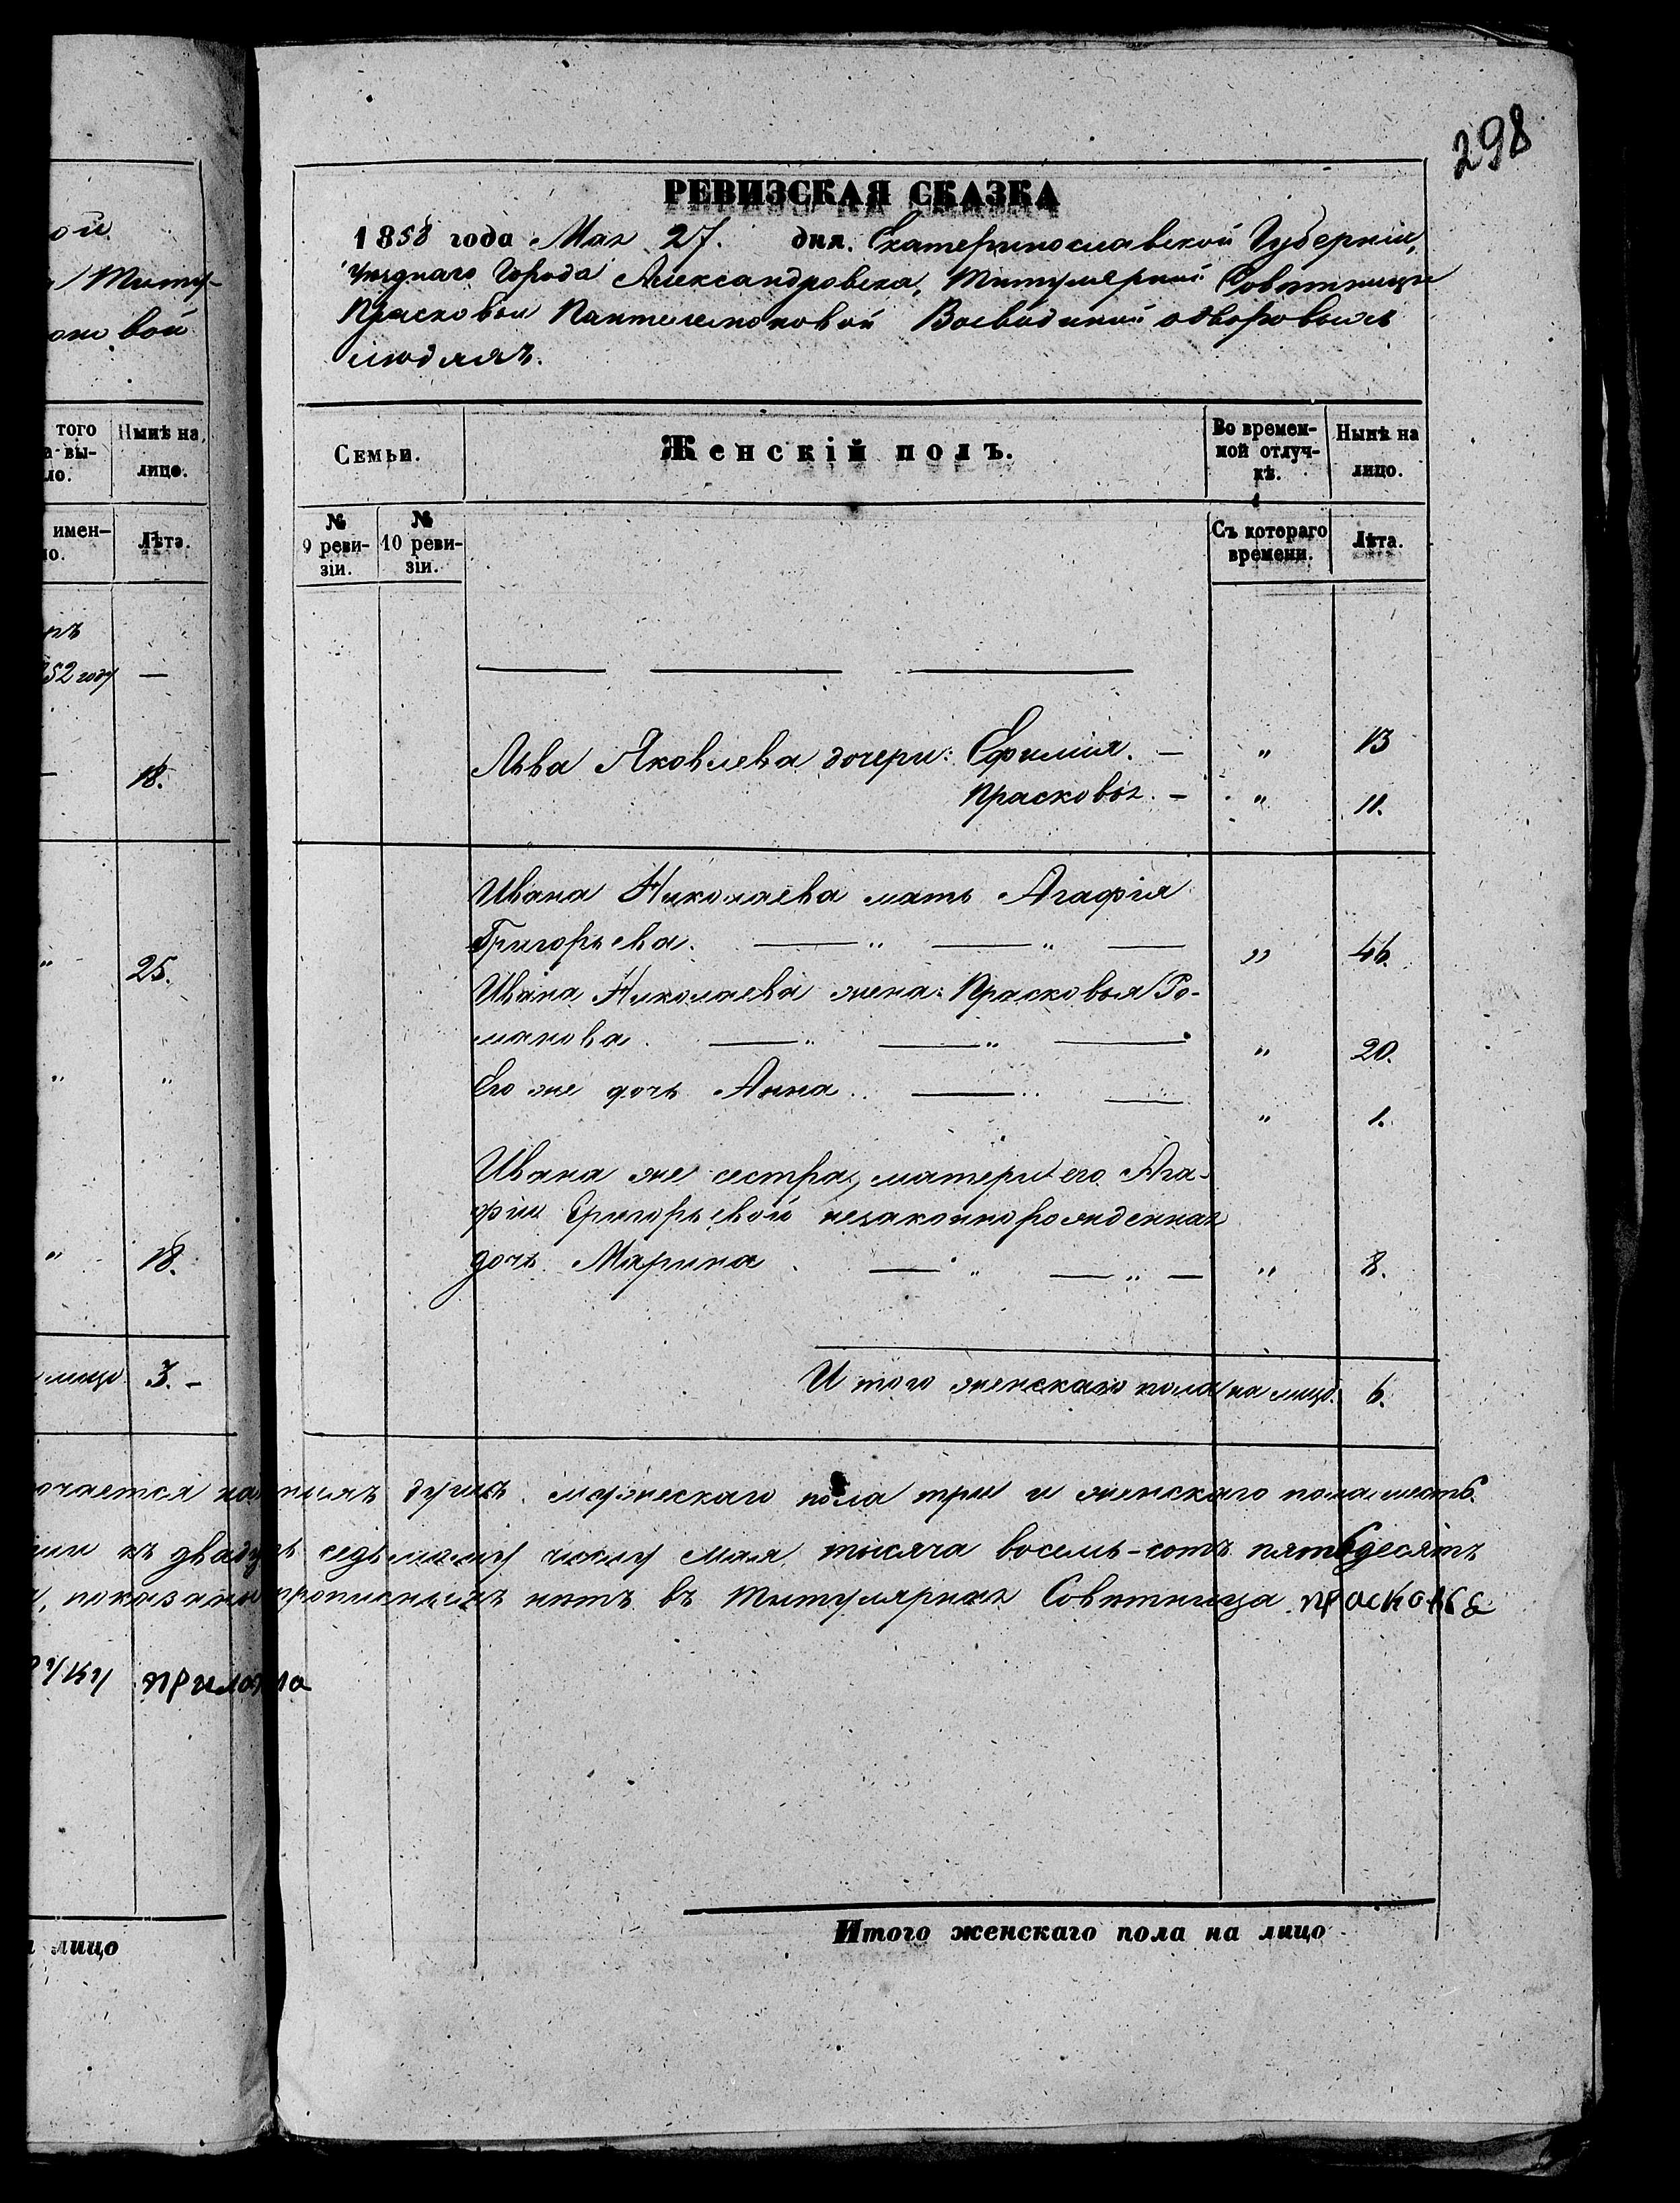 298
РЕВИЗСКАЯ СКАЗКА
1858 года Мая 27. дня. Екатеринославской Губерніи,
Уѣзднаго Города Александровска, Титулярной Совѣтницы
Прасковьи Пантелеймоновой Воеводиной о дворовыхъ
людяхъ.
Семьи.
Женскій полъ.
Во времен-
ной отлуч-
кѣ.
Нынѣ на
лицо.
№
9 реви-
зіи.
№
10 реви-
зіи.
Съ котораго
времени.
Лѣта.
Льва Яковлева дочери: Ефимія. — " 13
Прасковья. — " 11.
Ивана Николаева мать Агафія
Григорьева. — " — " — " 46.
Ивана Николаева жена: Прасковья Ро-
манова. — " — " — " 20.
Его же дочь Анна.. — .. — " 1.
Ивана же сестра, матери его Ага-
фіи Григорьевой незаконнорожденная
дочь Марина. — " — " — " 8.
Итого женскаго пола на лицо. 6.
душъ. мужескаго пола три и женскаго пола шесть.
къ двадцать седьмому числу Мая тысяча восемь-сотъ пятьдесятъ
показано прописныхъ нѣтъ въ Титулярная Совѣтница Прасковья
руку приложила
Итого женскаго пола на лицо
ой
Титу-
вой
того
вы-
ло.
Нынѣ на
лицо.
имен-
но.
Лѣта.
52 году —
— 18.
" 25.
" "
" 18.
лицо 3. —
лицо